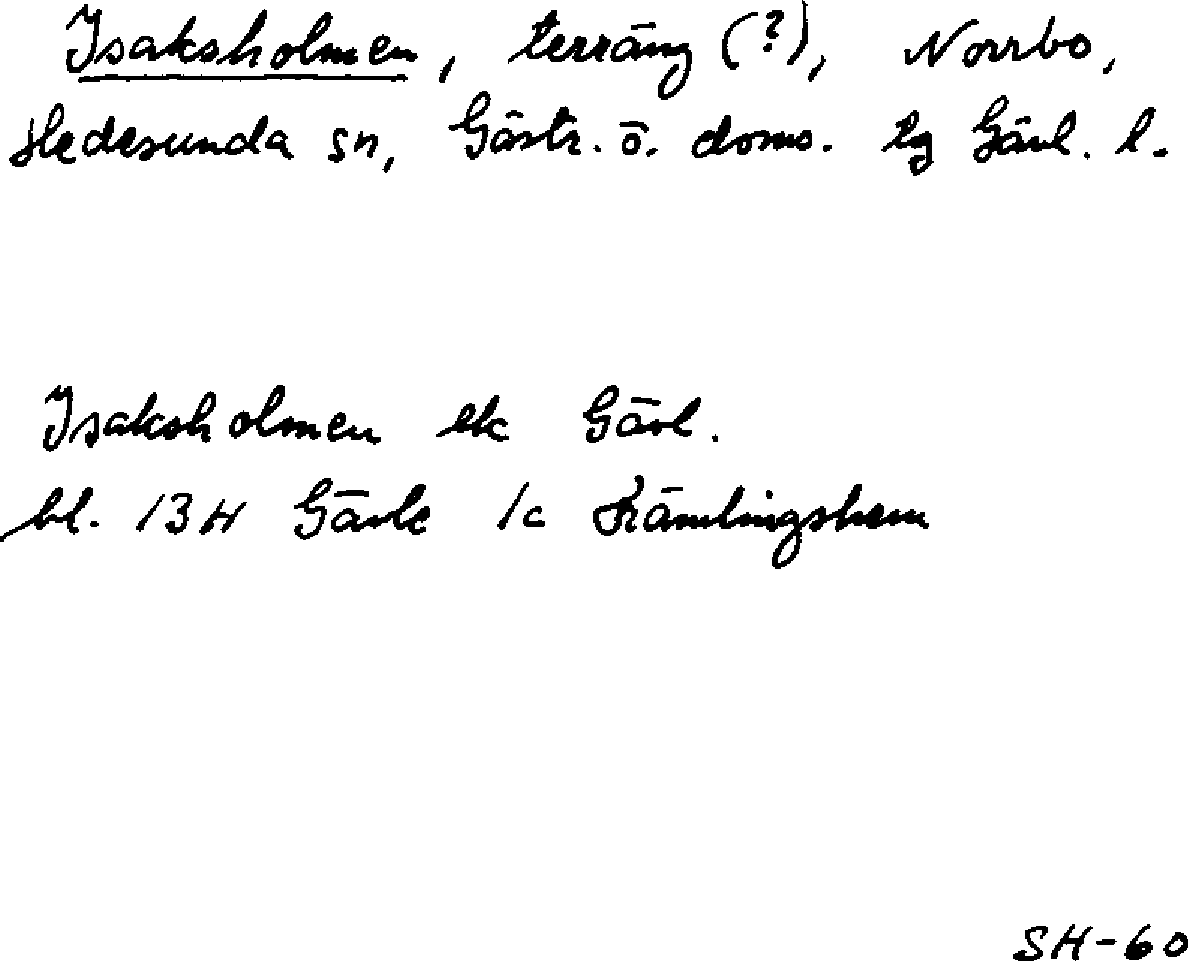 Isaksholmen, terräng (?), Norrbo,
Hedesunda sn, Gästr. ö. doms. tg Gävl. l.
Isaksholmen ek Gävl.
bl. 13H Gävle 1c Främlingshem
SH-60